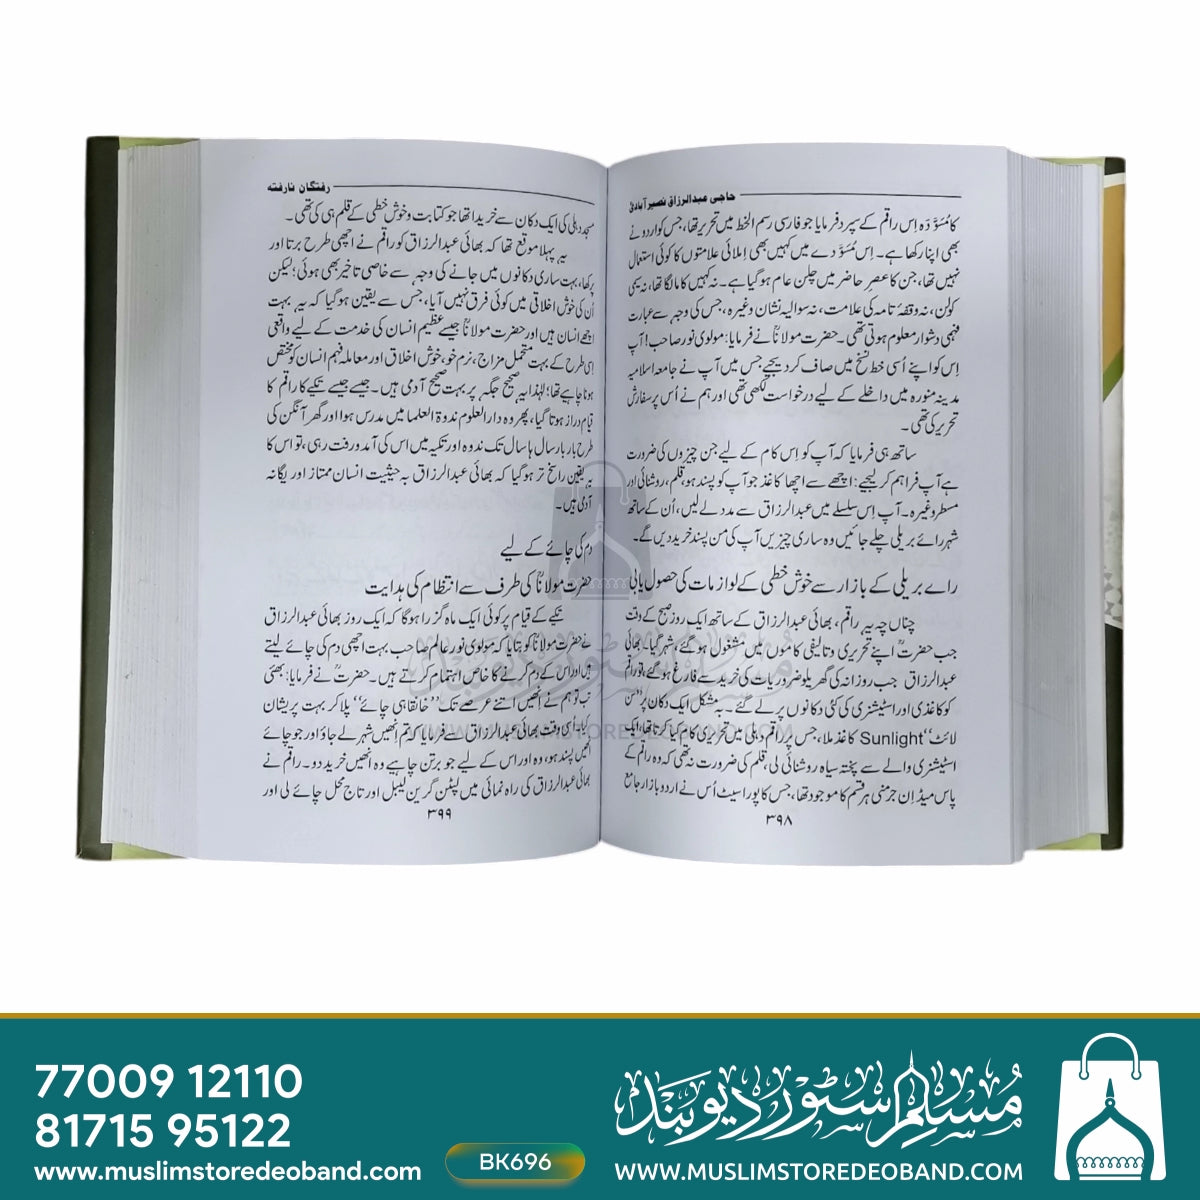 حاجی عبدالرزاق نصیرآبادیؒ
کا مُسَوَّدَہ اِس راقم کے سپرد فرمایا جو فارسی رسم الخط میں تحریر تھا، جس کو اردو نے
بھی اپنا رکھا ہے۔ اِس مُسَوَّدے میں کہیں بھی اِملائی علامتوں کا کوئی استعمال
نہیں تھا، جن کا عصرِ حاضر میں چلن عام ہو گیا ہے۔ نہ کہیں کاما لگا تھا، نہ سیمی
کولن، نہ وقفۂ تامہ کی علامت، نہ سوالیہ نشان وغیرہ، جس کی وجہ سے عبارت
فہمی دشوار معلوم ہوتی تھی۔ حضرت مولاناؒ نے فرمایا: مولوی نور صاحب! آپ
اِس کو اپنے اُسی خط نسخ میں صاف کر دیجیے جس میں آپ نے جامعہ اسلامیہ
مدینہ منورہ میں داخلے کے لیے درخواست لکھی تھی اور ہم نے اُس پر سفارش
تحریر کی تھی۔
ساتھ ہی فرمایا کہ آپ کو اِس کام کے لیے جن چیزوں کی ضرورت
ہے آپ فراہم کر لیجیے: اچھے سے اچھا کاغذ جو آپ کو پسند ہو، قلم، روشنائی اور
مسطر وغیرہ۔ آپ اِس سلسلے میں عبدالرزاق سے مدد لے لیں، اُن کے ساتھ
شہر رائے بریلی چلے جائیں وہ ساری چیزیں آپ کی من پسند خرید دیں گے۔
رائے بریلی کے بازار سے خوش خطی کے لوازمات کی حصول یابی
چناں چہ یہ راقم، بھائی عبدالرزاق کے ساتھ ایک روز صبح کے وقت
جب حضرتؒ اپنے تحریری و تالیفی کاموں میں مشغول ہو گئے، شہر گیا۔ بھائی
عبدالرزاق جب روزانہ کی گھریلو ضروریات کی خرید سے فارغ ہو گئے، تو راقم
کو کاغذی اور اسٹیشنری کی کئی دکانوں پر لے گئے۔ بہ مشکل ایک دکان پر ”سن
لائٹ“ Sunlight کاغذ ملا، جس پر راقم دہلی میں تحریری کام کیا کرتا تھا، ایک
اسٹیشنری والے سے پختہ سیاہ روشنائی لی، قلم کی ضرورت نہ تھی کہ وہ راقم کے
پاس میڈ اِن جرمنی ہر قسم کا موجود تھا، جس کا پورا سیٹ اُس نے اردو بازار جامع
۳۹۸
رفتگانِ نارفتہ
مسجد دہلی کی ایک دکان سے خریدا تھا جو کتابت و خوش خطی کے قلم ہی کی تھی۔
یہ پہلا موقع تھا کہ بھائی عبدالرزاق کو راقم نے اچھی طرح برتا اور
پرکھا، بہت ساری دکانوں میں جانے کی وجہ سے خاصی تاخیر بھی ہوئی؛ لیکن
اُن کی خوش اخلاقی میں کوئی فرق نہیں آیا، جس سے یقین ہو گیا کہ یہ بہت
اچھے انسان ہیں اور حضرت مولاناؒ جیسے عظیم انسان کی خدمت کے لیے واقعی
اِسی طرح کے بہت متحمل مزاج، نرم خو، خوش اخلاق اور معاملہ فہم انسان کو مختص
ہونا چاہیے تھا؛ لہٰذا یہ صحیح جگہ پر بہت صحیح آدمی ہیں۔ جیسے جیسے تکیے کا راقم کا
قیام دراز ہوتا گیا، پھر وہ دارالعلوم ندوۃ العلما میں مدرس ہوا اور گھر آنگن کی
طرح بار بار سال ہا سال تک ندوہ اور تکیہ میں اس کی آمد و رفت رہی، تو اس کا
یہ یقین راسخ تر ہو گیا کہ بھائی عبدالرزاق بہ حیثیت انسان ممتاز اور یگانہ
آدمی ہیں۔
دم کی چائے کے لیے
حضرت مولاناؒ کی طرف سے انتظام کی ہدایت
تکیے کے قیام پر کوئی ایک ماہ گزرا ہوگا کہ ایک روز بھائی عبدالرزاق
نے حضرت مولاناؒ کو بتایا کہ مولوی نور عالم صاحب بہت اچھی دم کی چائے لیتے
ہیں اور اس کے دم کرنے کا خاص اہتمام کرتے ہیں۔ حضرتؒ نے فرمایا: بھئی
تب تو ہم نے اِنھیں اتنے عرصے تک ”خانقاہی چائے“ پلا کر بہت پریشان
کیا۔ اُسی وقت بھائی عبدالرزاق سے فرمایا کہ تم اِنھیں شہر لے جاؤ اور جو چائے
اُنھیں پسند ہو، وہ اور اس کے لیے جو برتن چاہیے وہ اُنھیں خرید دو۔ راقم نے
بھائی عبدالرزاق کی راہ نمائی میں لپٹن گرین لیبل اور تاج محل چائے لی اور
۳۹۹
مسلم سٹور دیوبند
WWW.MUSLIMSTOREDEOBAND.COM
77009 12110
81715 95122
www.muslimstoredeoband.com
BK696
مُسلم سٹور دیوبند
WWW.MUSLIMSTOREDEOBAND.COM